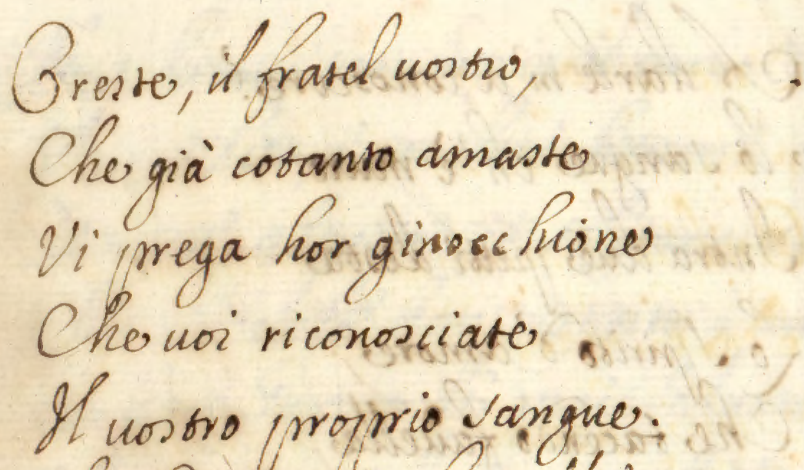 Oreste, il fratel vostro,
Che già cotanto amaste
Vi prega hor ginocchione
Che voi riconosciate
Il vostro proprio sangue.